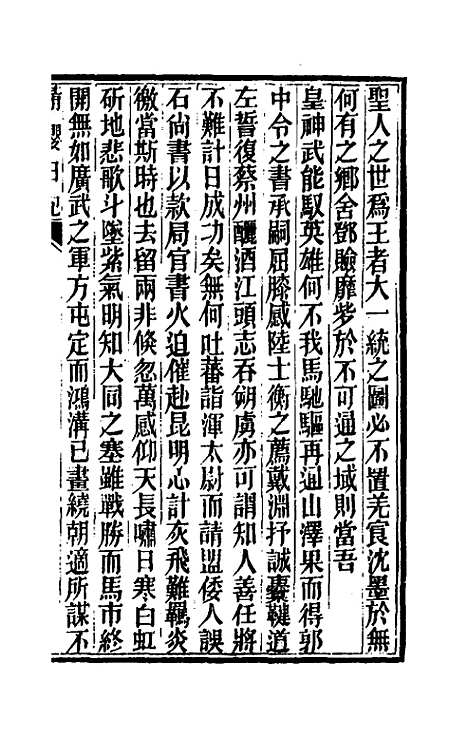 聖人之世爲王者大一統之圖必不置羌㝗沈墨於無
何有之鄉舍鄧賧靡莎於不可通之域則當吾
皇神武能馭英雄何不我馬馳驅再過山澤果而得郭
中令之書承嗣屈膝感陸士衡之薦戴淵抒誠櫜鞬道
左誓復蔡州釃酒江頭志吞朔虜亦可謂知人善任將
不難計日成功矣無何吐蕃詣渾太尉而請盟倭人誤
石尙書以款局官書火迫催赴昆明心計灰飛難羈炎
徼當斯時也去留兩非倐忽萬感仰天長嘯日寒白虹
斫地悲歌斗墜紫氣明知大同之塞雖戰勝而馬市終
開無如廣武之軍方屯定而鴻溝已畫繞朝適所謀不
請纓日記